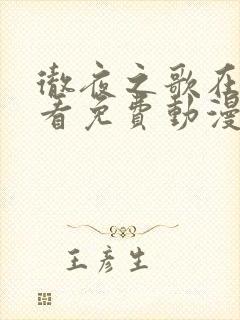 徹夜之歌在
看免費動漫
王彦生